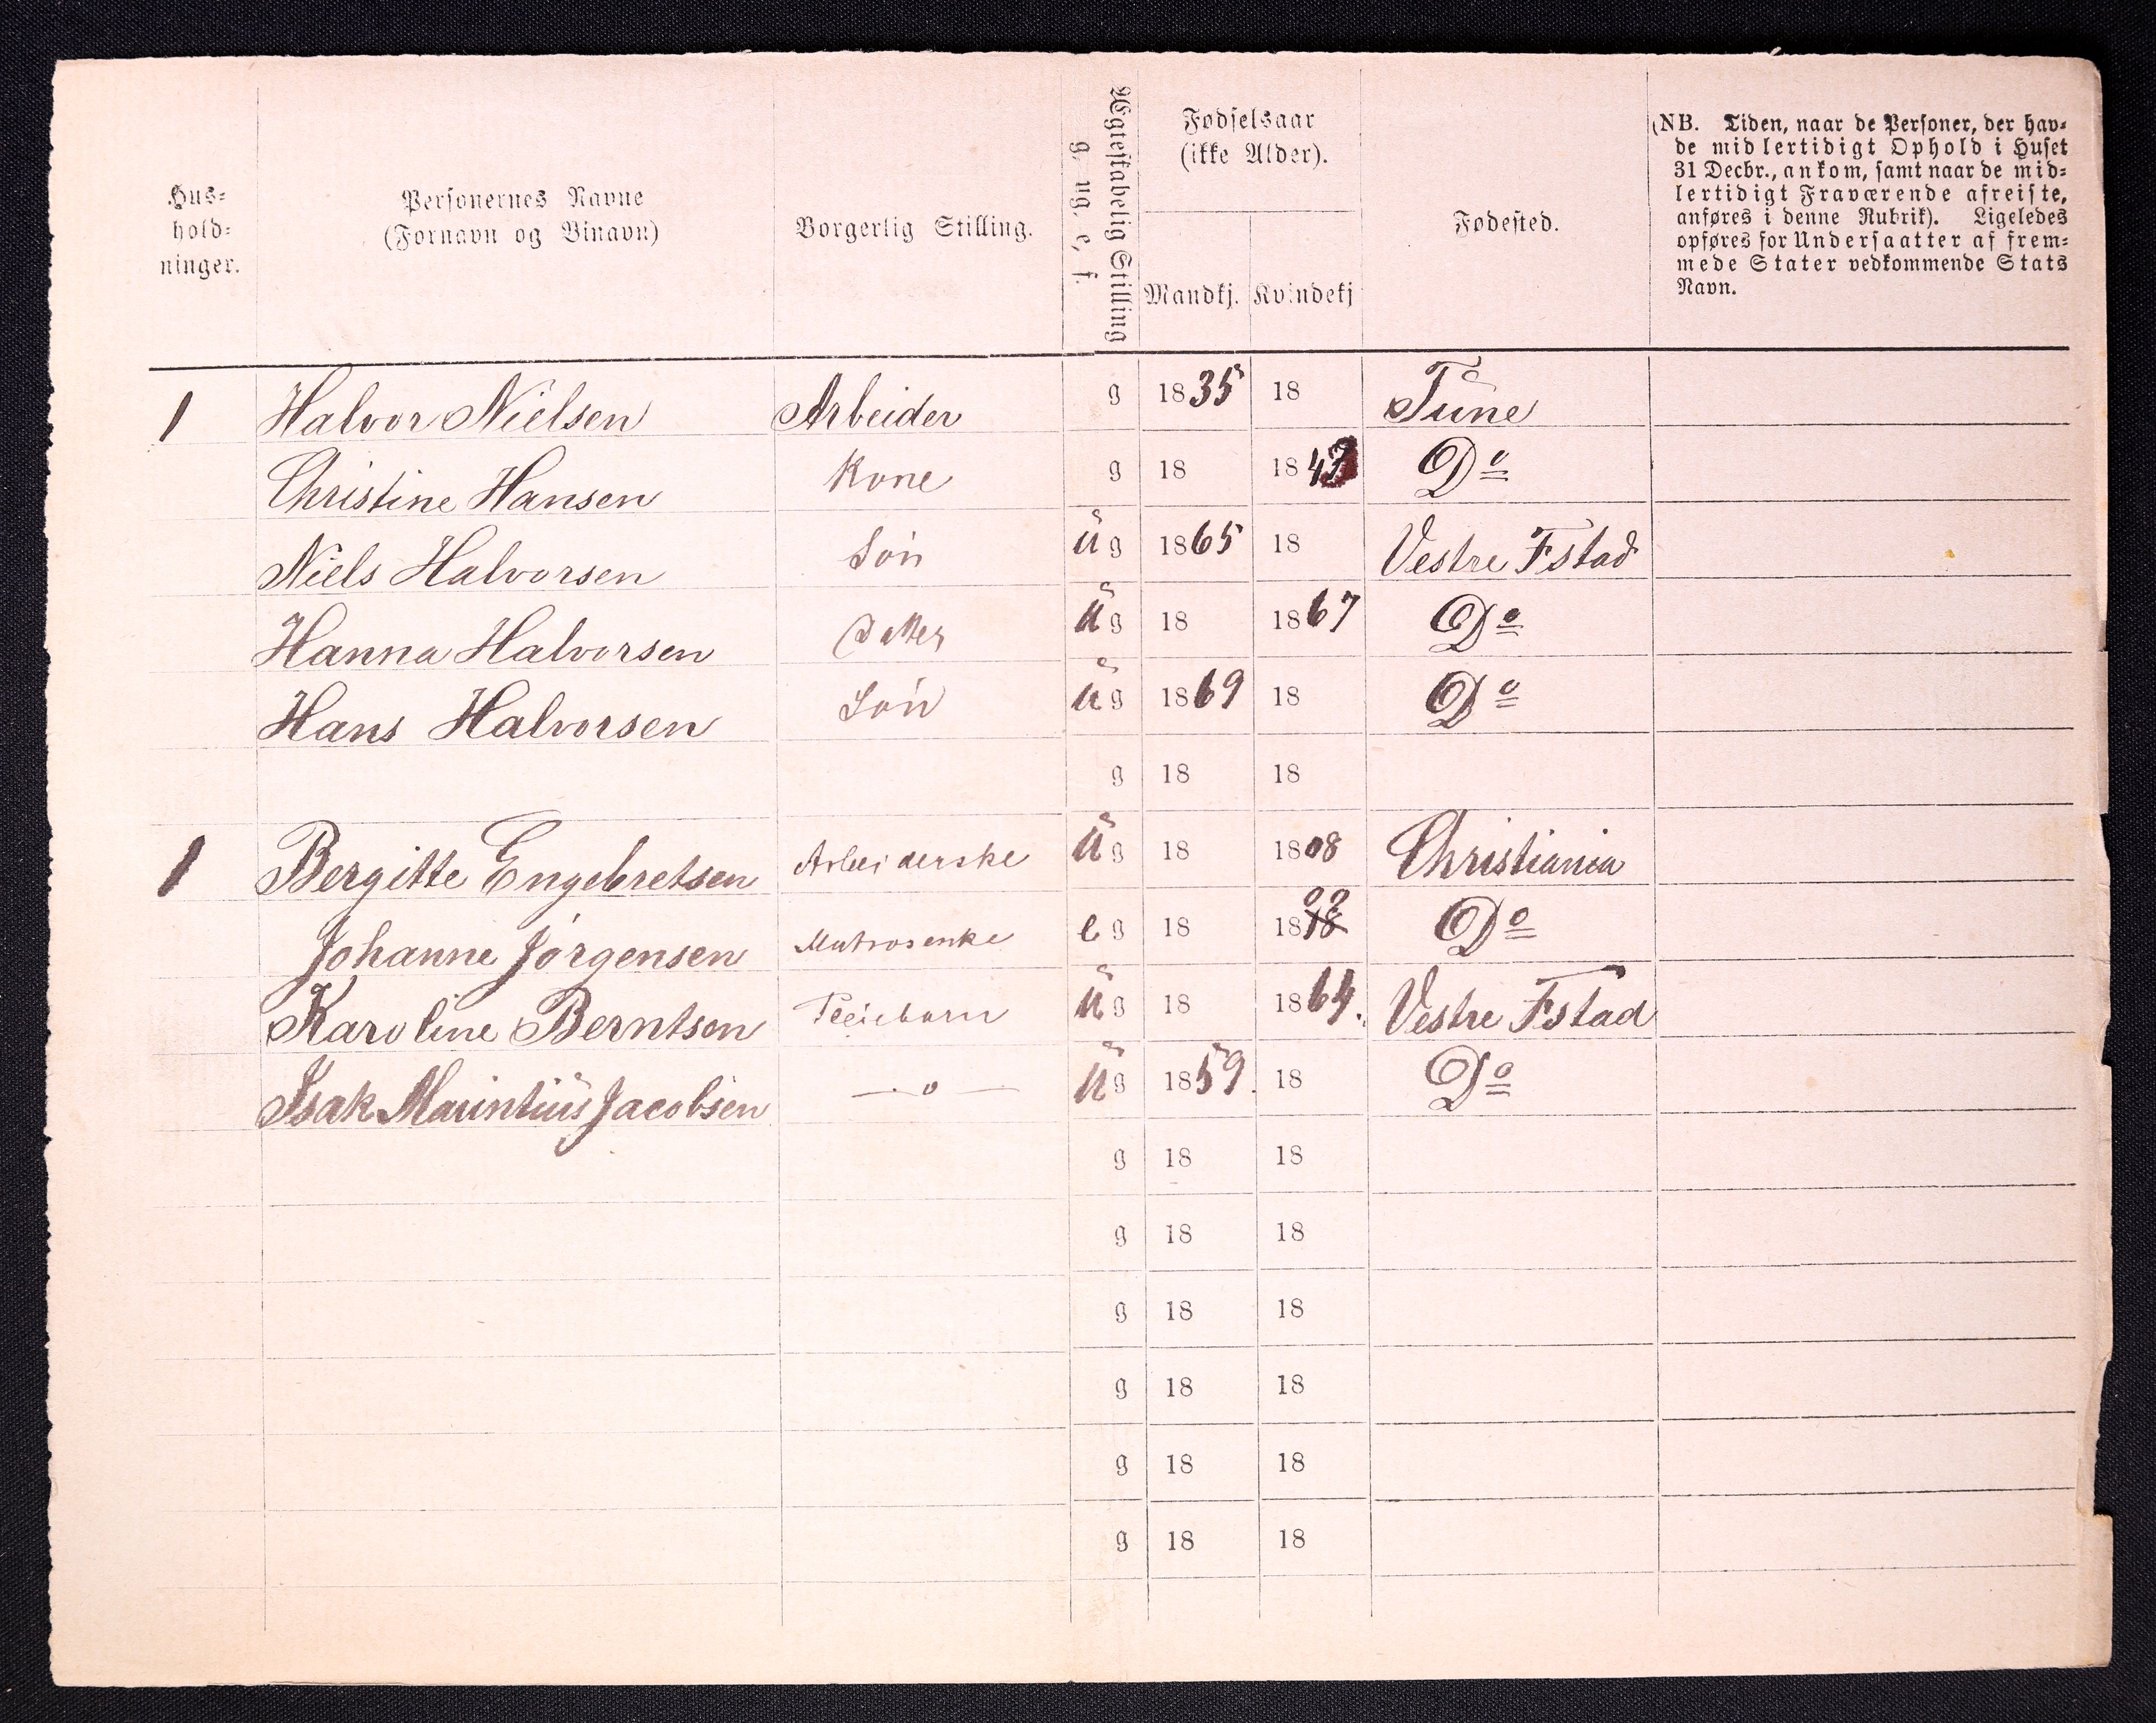 Hus-
hold-
ninger.
Personernes Navne
(Fornavn og Binavn)
Borgerlig Stilling.
Ægteskabelig Stilling
g, ug, e, f.
Fødselsaar
(ikke Alder).
Mandkj. Kvindekj
Fødested.
(NB. Tiden, naar de Personer, der hav-
de midlertidigt Ophold i Huset
31 Decbr., ankom, samt naar de mid-
lertidigt Fraværende afreiste,
anføres i denne Rubrik). Ligeledes
opføres for Undersaatter af frem-
mede Stater vedkommende Stats
Navn.
1 Halvor Nielsen Arbeider g 1835 18 Tune
Christine Hansen Kone g 18 1843 Do
Niels Halvorsen Søn ug 1865 18 Vestre Fstad
Hanna Halvorsen Datter ug 18 1867 Do
Hans Halvorsen Søn ug 1869 18 Do
g 18 18
1 Bergitte Engebretsen Arbeiderske ug 18 1808 Christiania
Johanne Jørgensen Matrosenke eg 18 18 Do
Karoline Berntsen Pleiebarn ug 18 1864. Vestre Fstad
Isak Marintius Jacobsen —o— ug 1859. 18 Do
g 18 18
g 18 18
g 18 18
g 18 18
g 18 18
g 18 18